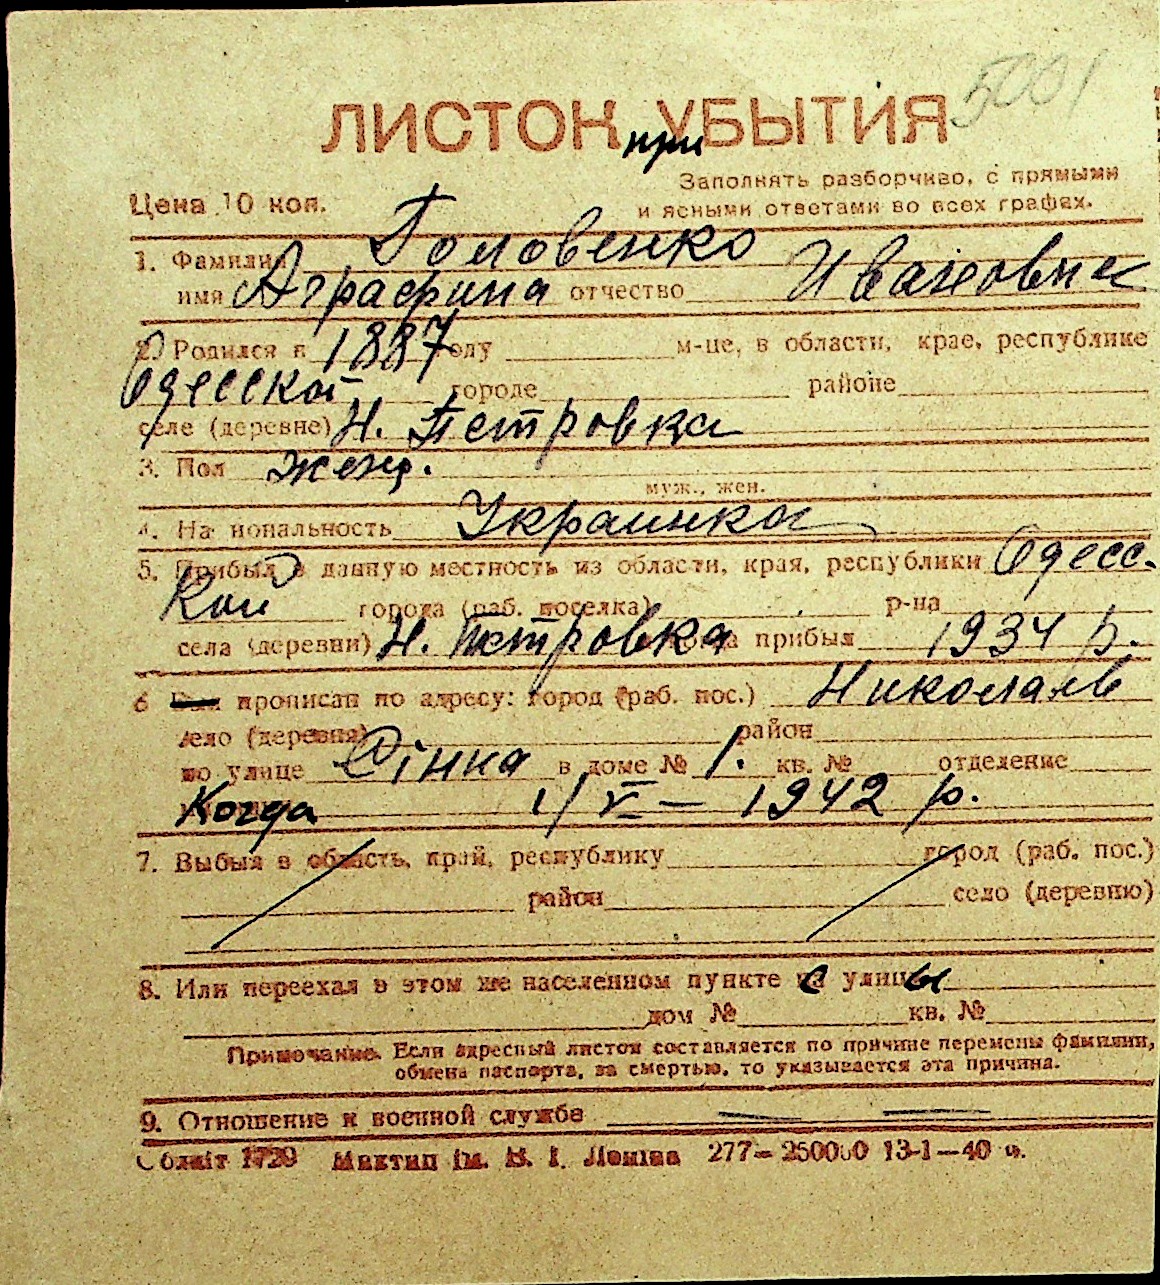 5001
ЛИСТОК УБЫТИЯ
при
Заполнять разборчиво, с прямыми
Цена 10 коп. и ясными ответами во всех графах.
1. Фамилия Головенко
имя Аграфина отчество Ивановна
2. Родился в 1887 году м-це, в области, крае, республике
Одесской городе районе
селе (деревне) Н. Петровка
3. Пол женщ.
муж., жен.
4. Национальность Украинка
5. Прибыл в данную местность из области, края, республики Одесс-
кой города (раб. поселка) р-на
села (деревни) Н. Петровка прибыл 1934 р.
6 прописан по адресу: город (раб. пос.) Николаев
село (деревня) район
по улице Сінна в доме № 1. кв. № отделение
Когда 1/V — 1942 р.
7. Выбыл в область, край, республику город (раб. пос.)
район село (деревню)
8. Или переехал в этом же населенном пункте с улицы
дом № кв. №
Примечание. Если адресный листок составляется по причине перемены фамилии,
обмена паспорта, за смертью, то указывается эта причина.
9. Отношение к военной службе
Обліт 1720 Миктип ім. В. І. Леніна 277— 250000 13-1—40 р.